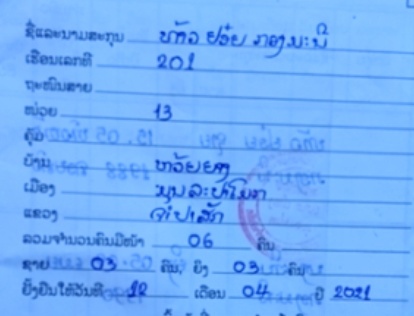 ຊື່ແລະນາມສະກຸນ ທ້າວ ຢອຍ ກອງມະນີ
ເຮືອນເລກທີ 201
ຖະໜົນສາຍ
ໜ່ວຍ 13
ຄຸ້ມ
ບ້ານ ຫ້ວຍຍາງ
ເມືອງ ມູນລະປາໂມກ
ແຂວງ ຈຳປາສັກ
ລວມຈຳນວນຄົນມີໜ້າ 06 ຄົນ
ຊາຍ 03 ຄົນ, ຍິງ 03 ຄົນ
ຢັ້ງຢືນໃຫ້ວັນທີ 12 ເດືອນ 04 ປີ 2021